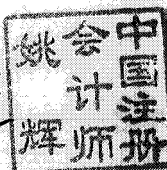 中国注册
会计师
姚辉